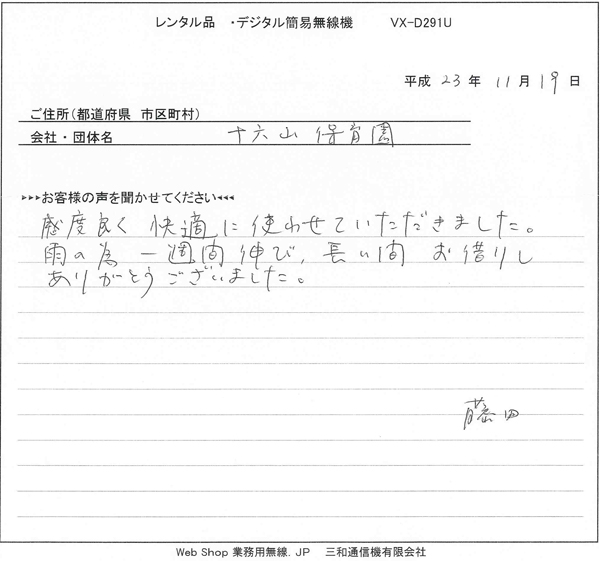 レンタル品 ・デジタル簡易無線機 VX-D291U
平成 23 年 11 月 19 日
ご住所(都道府県 市区町村)
会社・団体名 十六山 保育園
▸▸▸お客様の声を聞かせてください◂◂◂
感度良く 快適に使わせていただきました。
雨の為 一週間伸び、長い間 お借りし
ありがとうございました。
藤田
Web Shop 業務用無線.JP 三和通信機有限会社